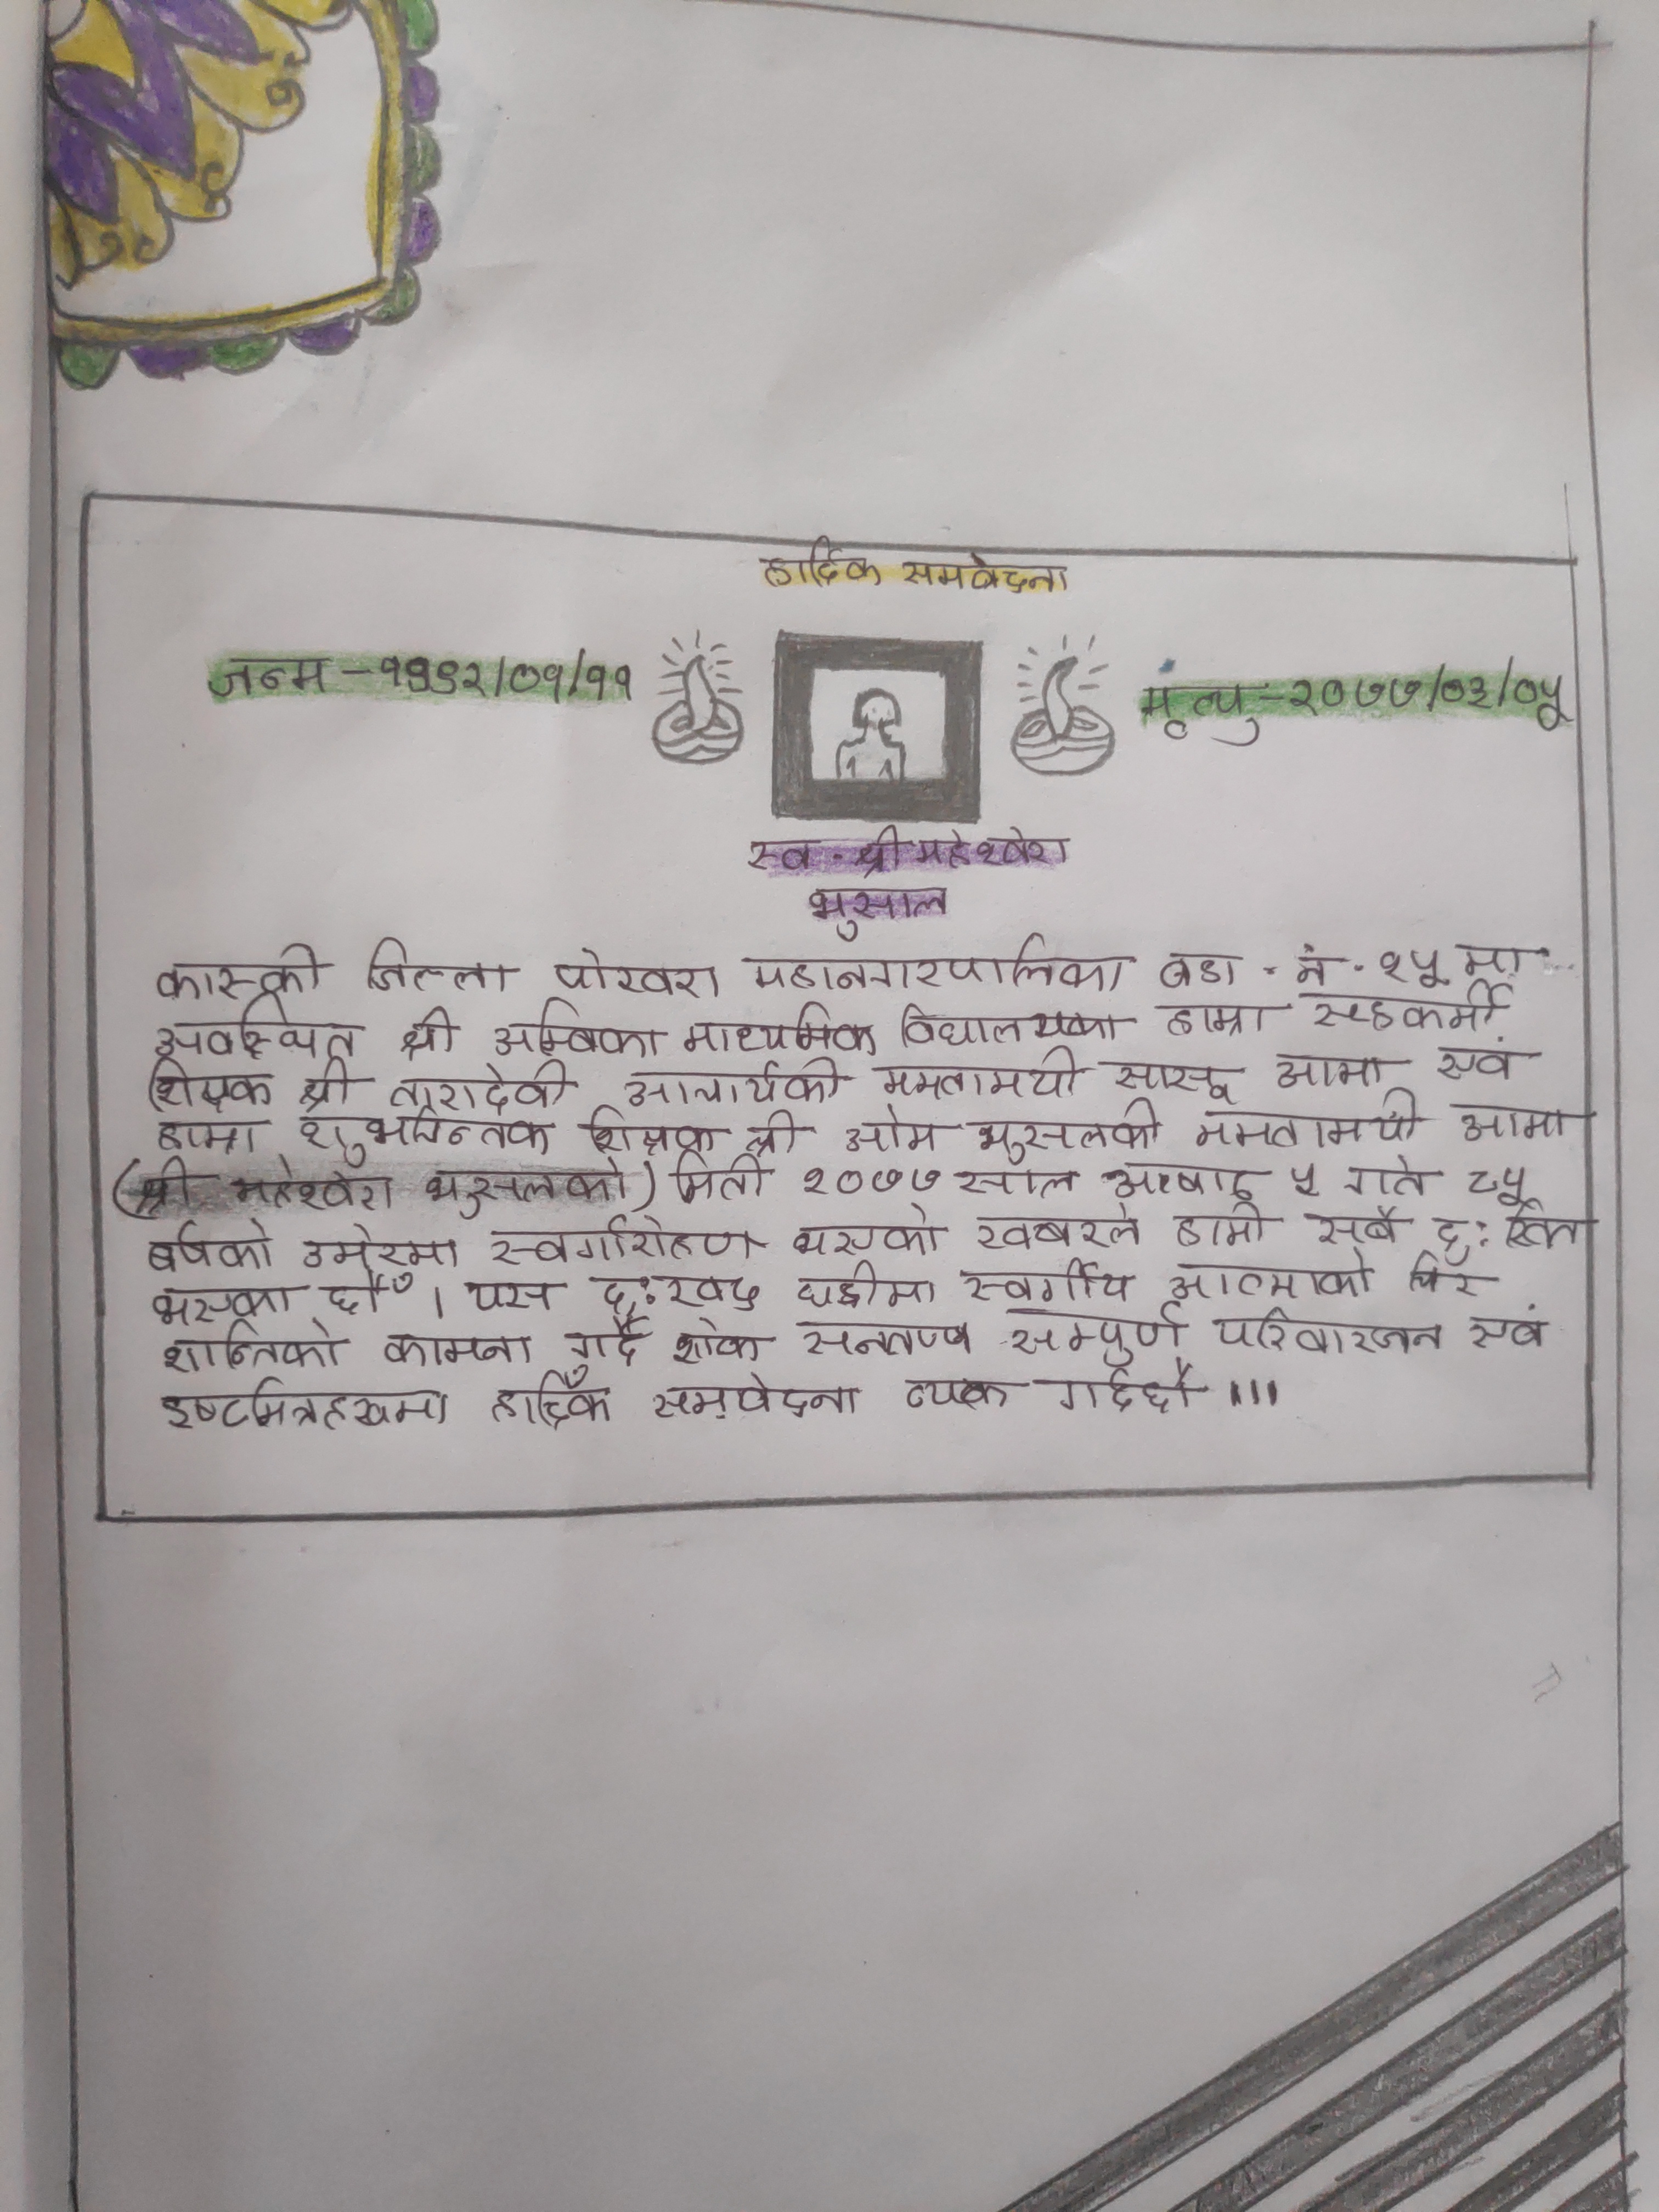 हार्दिक समवेदना
जन्म-१९९२/०१/११
मृत्यु-२०७७/०३/०५
स्व. श्री महेश्वेरा
भुसाल
कास्की जिल्ला पोखरा महानगरपालिका वडा. नं. १५ मा
अवस्थित श्री अम्बिका माध्यमिक विद्यालयका हाम्रा सहकर्मी
शिक्षक श्री तारादेवी आचार्यकी ममतामयी सासू आमा एवं
हाम्रा शुभचिन्तक शिक्षक श्री ओम भुसलकी ममतामयी आमा
(श्री महेश्वेरा भुसलको) मिती २०७७ साल आषाढ ५ गते ८५
बर्षको उमेरमा स्वर्गारोहण भएको खबरले हामी सबै दु:खित
भएका छौँ । यस दु:खद घडीमा स्वर्गीय आत्माको चिर
शान्तिको कामना गर्दै शोक सन्तप्त सम्पुर्ण परिवारजन एवं
इष्टमित्रहरुमा हार्दिक समवेदना व्यक्त गर्दछौँ ।।।